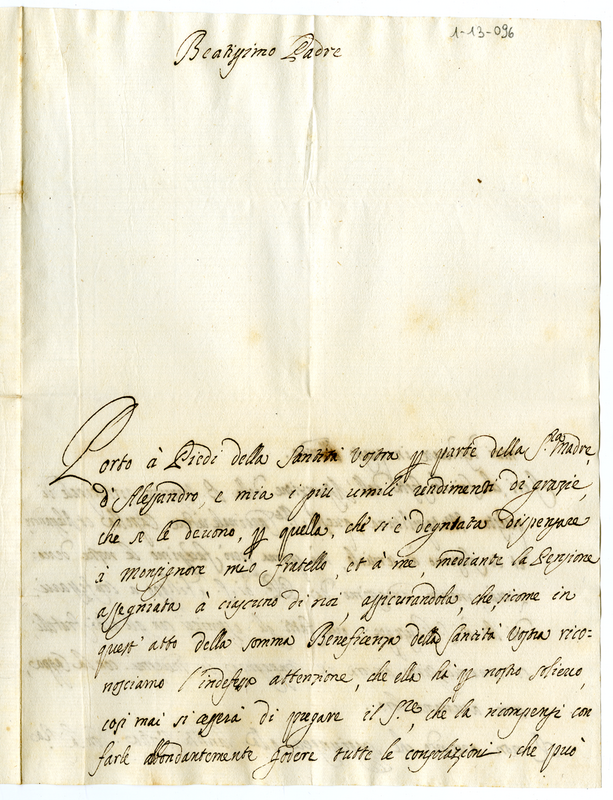 1-13-096
Beatissimo Padre
Porto à Piedi della Santità Vostra p parte della S.ra Madre,
d'Alessandro, e mia i più umili rendimenti di grazie,
che se le devono, p quella, che si è degniata dispensare
à Monsignore mio fratello, et à me mediante la Pensione
assegniata à ciascuno di noi assicurandola, che sicome in
quest' atto della somma Beneficenza della Santità Vostra rico=
nosciamo l'indefessa attenzione, che ella hà p nostro solievo,
così mai si cesserà di pregare il S.re, che la ricompensi con
farle abbondantemente godere tutte le consolazioni, che può